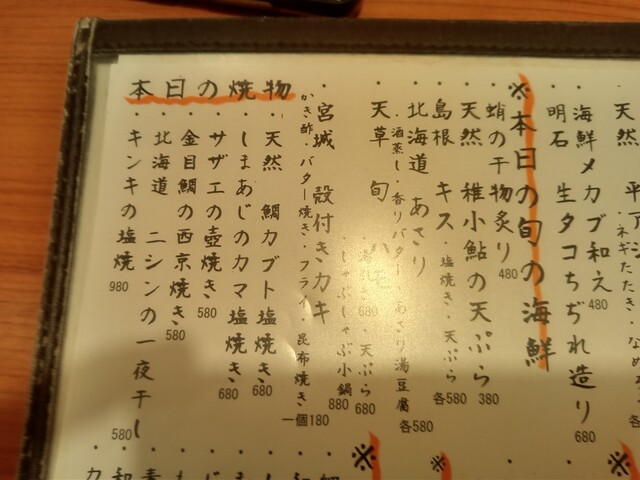 天然 平アジ
ネギたたき・なめ
海鮮メカブ和え 480
明石 生タコちぢれ造り 680
※本日の旬の海鮮
・蛸の干物炙り 480
・天然 稚小鮎の天ぷら 380
・島根 キス・塩焼き・天ぷら 各580
・北海道 あさり
・酒蒸し・香りバター あさり湯豆腐 各580
・天草 旬 ハモ
680・天ぷら 680
・しゃぶしゃぶ小鍋 880
・宮城 殻付きカキ
かき酢・バター焼き・フライ・昆布焼き 一個180
本日の焼物
・天然 鯛カブト塩焼き 680
・しまあじのカマ塩焼き 680
・サザエの壺焼き 580
・金目鯛の西京焼き 580
・北海道 ニシンの一夜干し 580
・キンキの塩焼 980